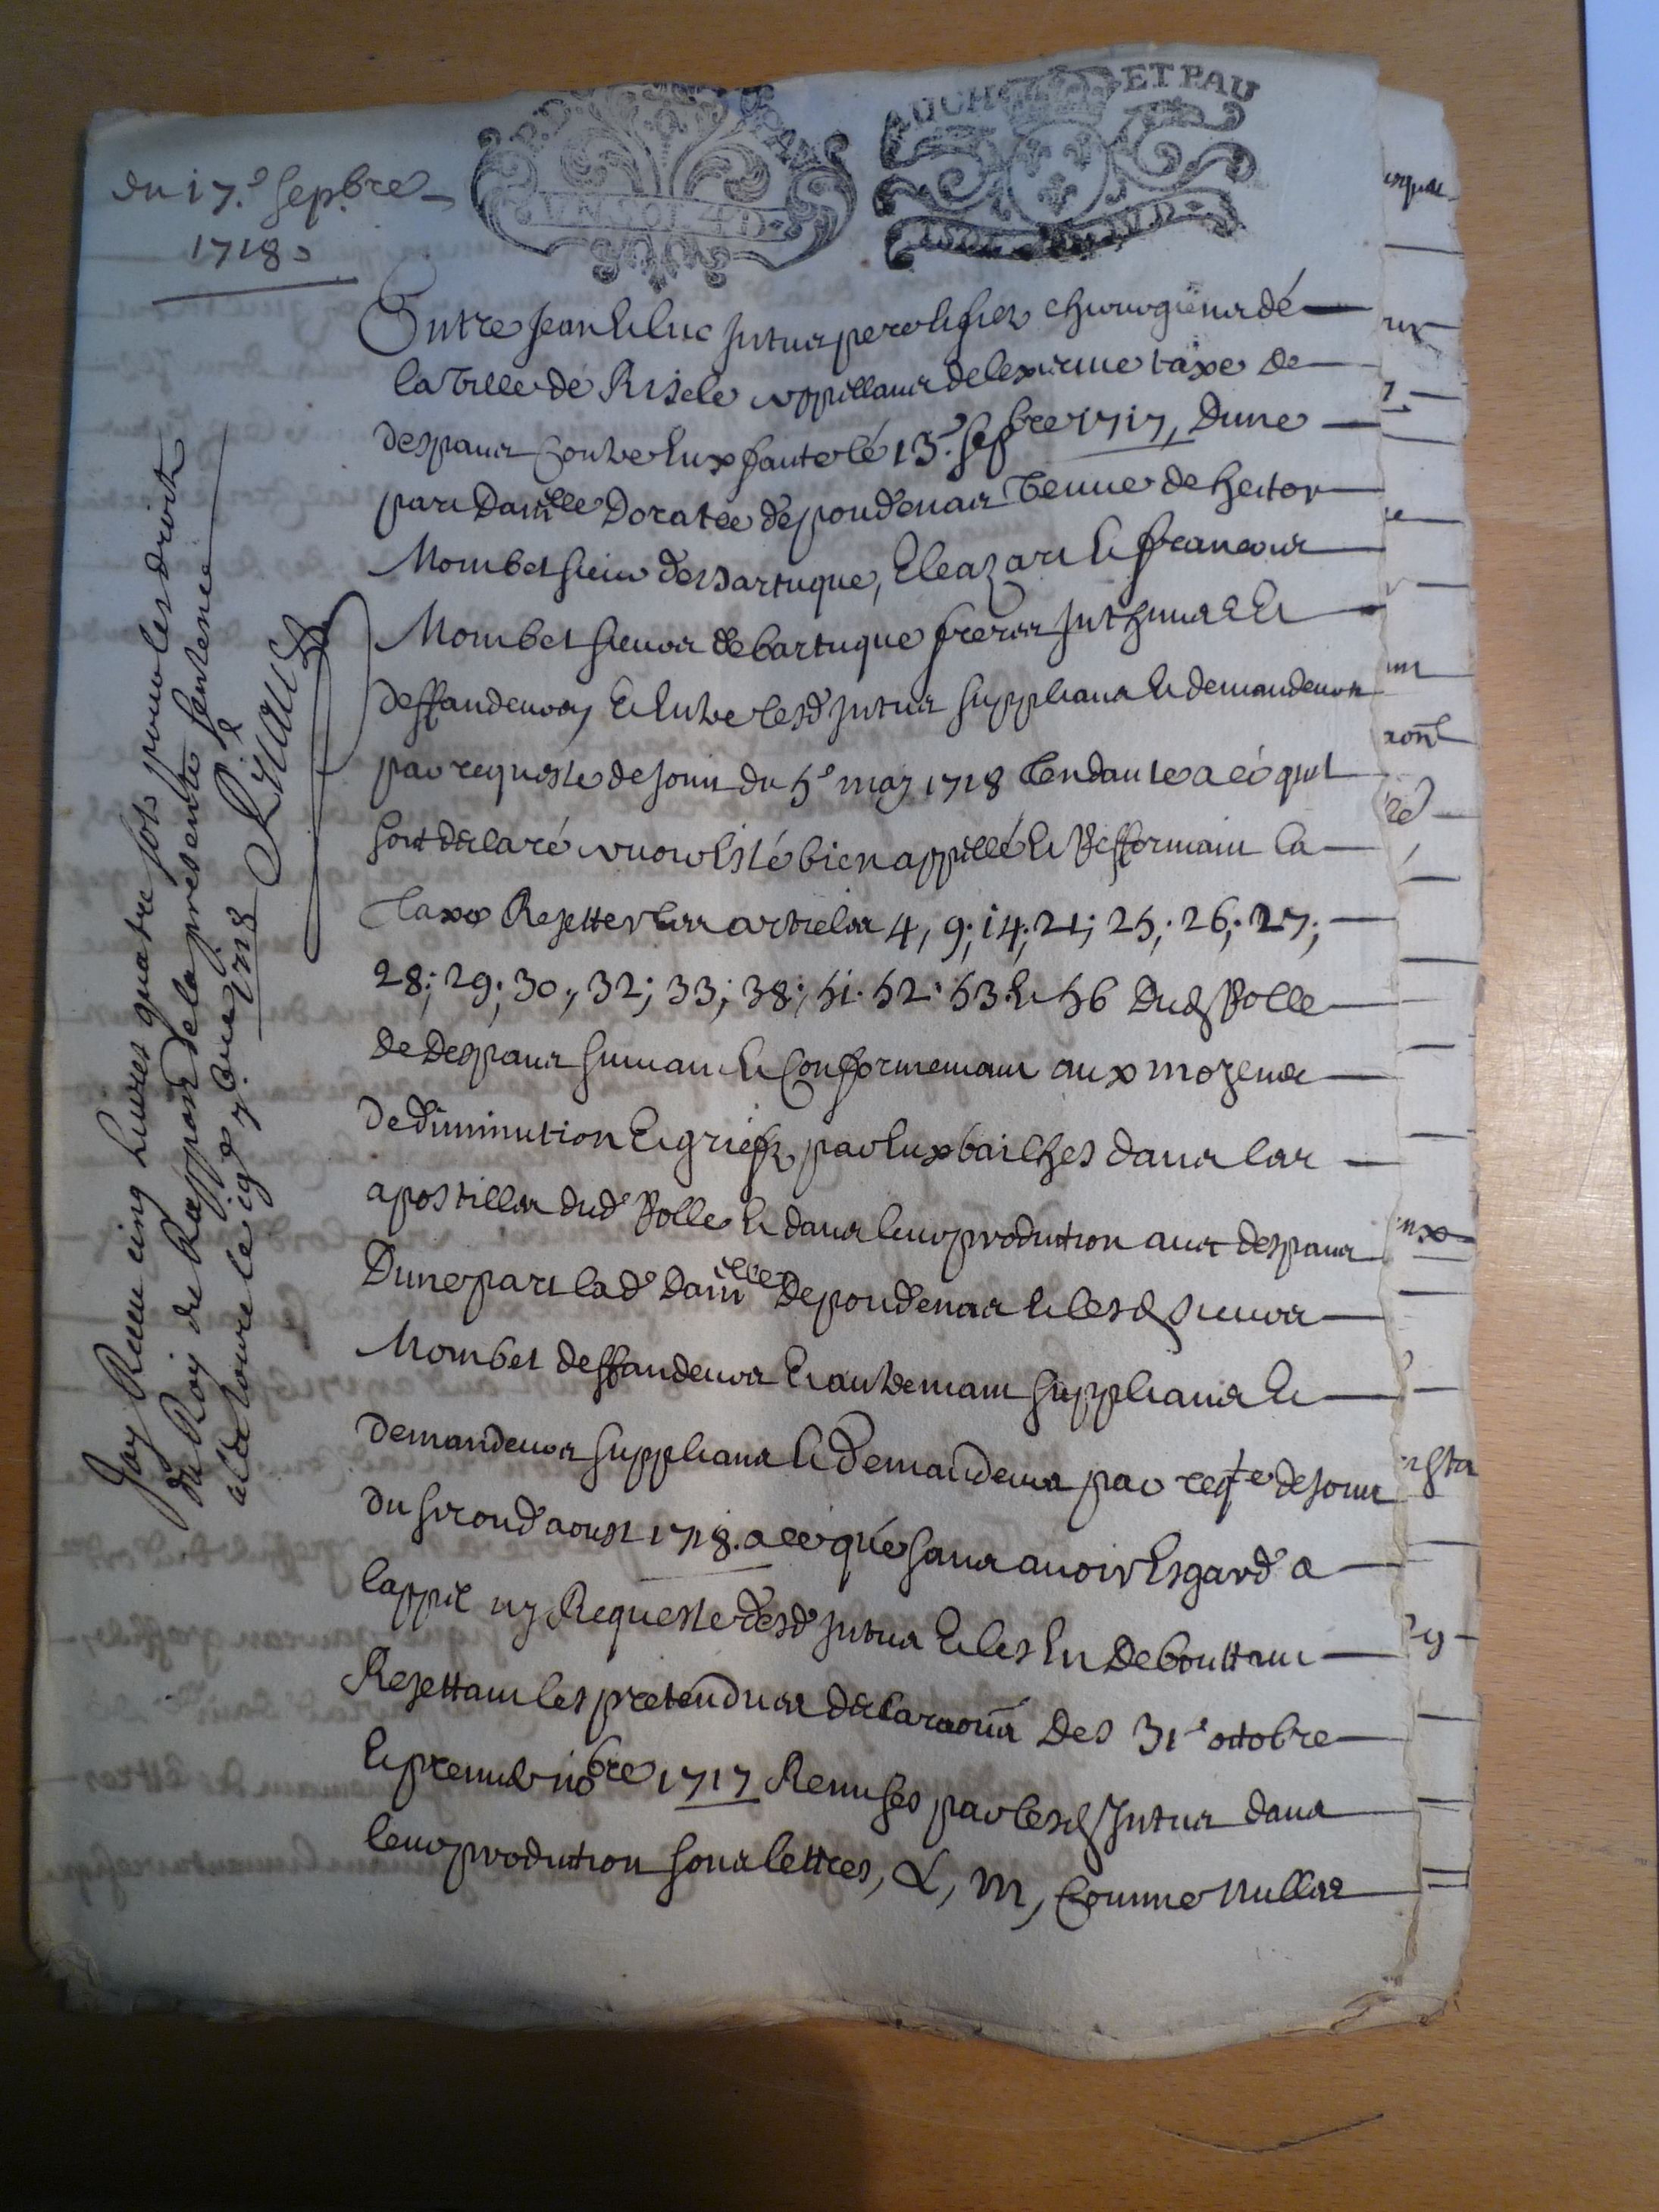 AUCH ET PAU
UN SOL 4 D.
du 17.e sepbre
1718
Entre Jean et Luc Intus pere et fils chirurgiens dé
la ville dé Risele appellans de lexsaime taxe de
despans contre eux faite lé 13.e sepbre 1717, Dune
part Damlle Doratee de poudenas veuve de hector
Mombet sieur de Bartuque, Eleazart et francois
Mombet sieurs de bartuque freres Inthimes et
deffandeurs, et Entre lesd Intus supplians et demandeurs
par requeste de soin du 5e may 1718 tendante a cé quil
soit declaré avoir esté bien appellé et Refformant la
Taxe Rejetter les articles 4, 9; 14; 21; 25; 26; 27;
28; 29; 30; 32; 33; 38; 51. 52. 53. et 56 Dud Rolle
de Despans suivant et conformemant aux moyens
de diminution et griefs par eux bailhes dans les
apostilles dud Rolle et dans leur prodution aux despans
Dune part lad damlle de poudenas et lesd sieurs
Mombet deffandeurs et autremant supplians et
demandeurs supplians et demandeurs par reqte de soin
du second aoust 1718. a ce qué sans avoir esgard a
lappel ny Requeste desd Intus et les en Deboutttant
Rejettant les pretendues declaraons Des 31e octobre
et premier 9bre 1717 Remises par lesd Intus dans
leur prodution sous lettres, L, M, comme nulles
Jay Receu cinq livres quatre sols pour les droits
du Roy du Rapport de la presente sentence